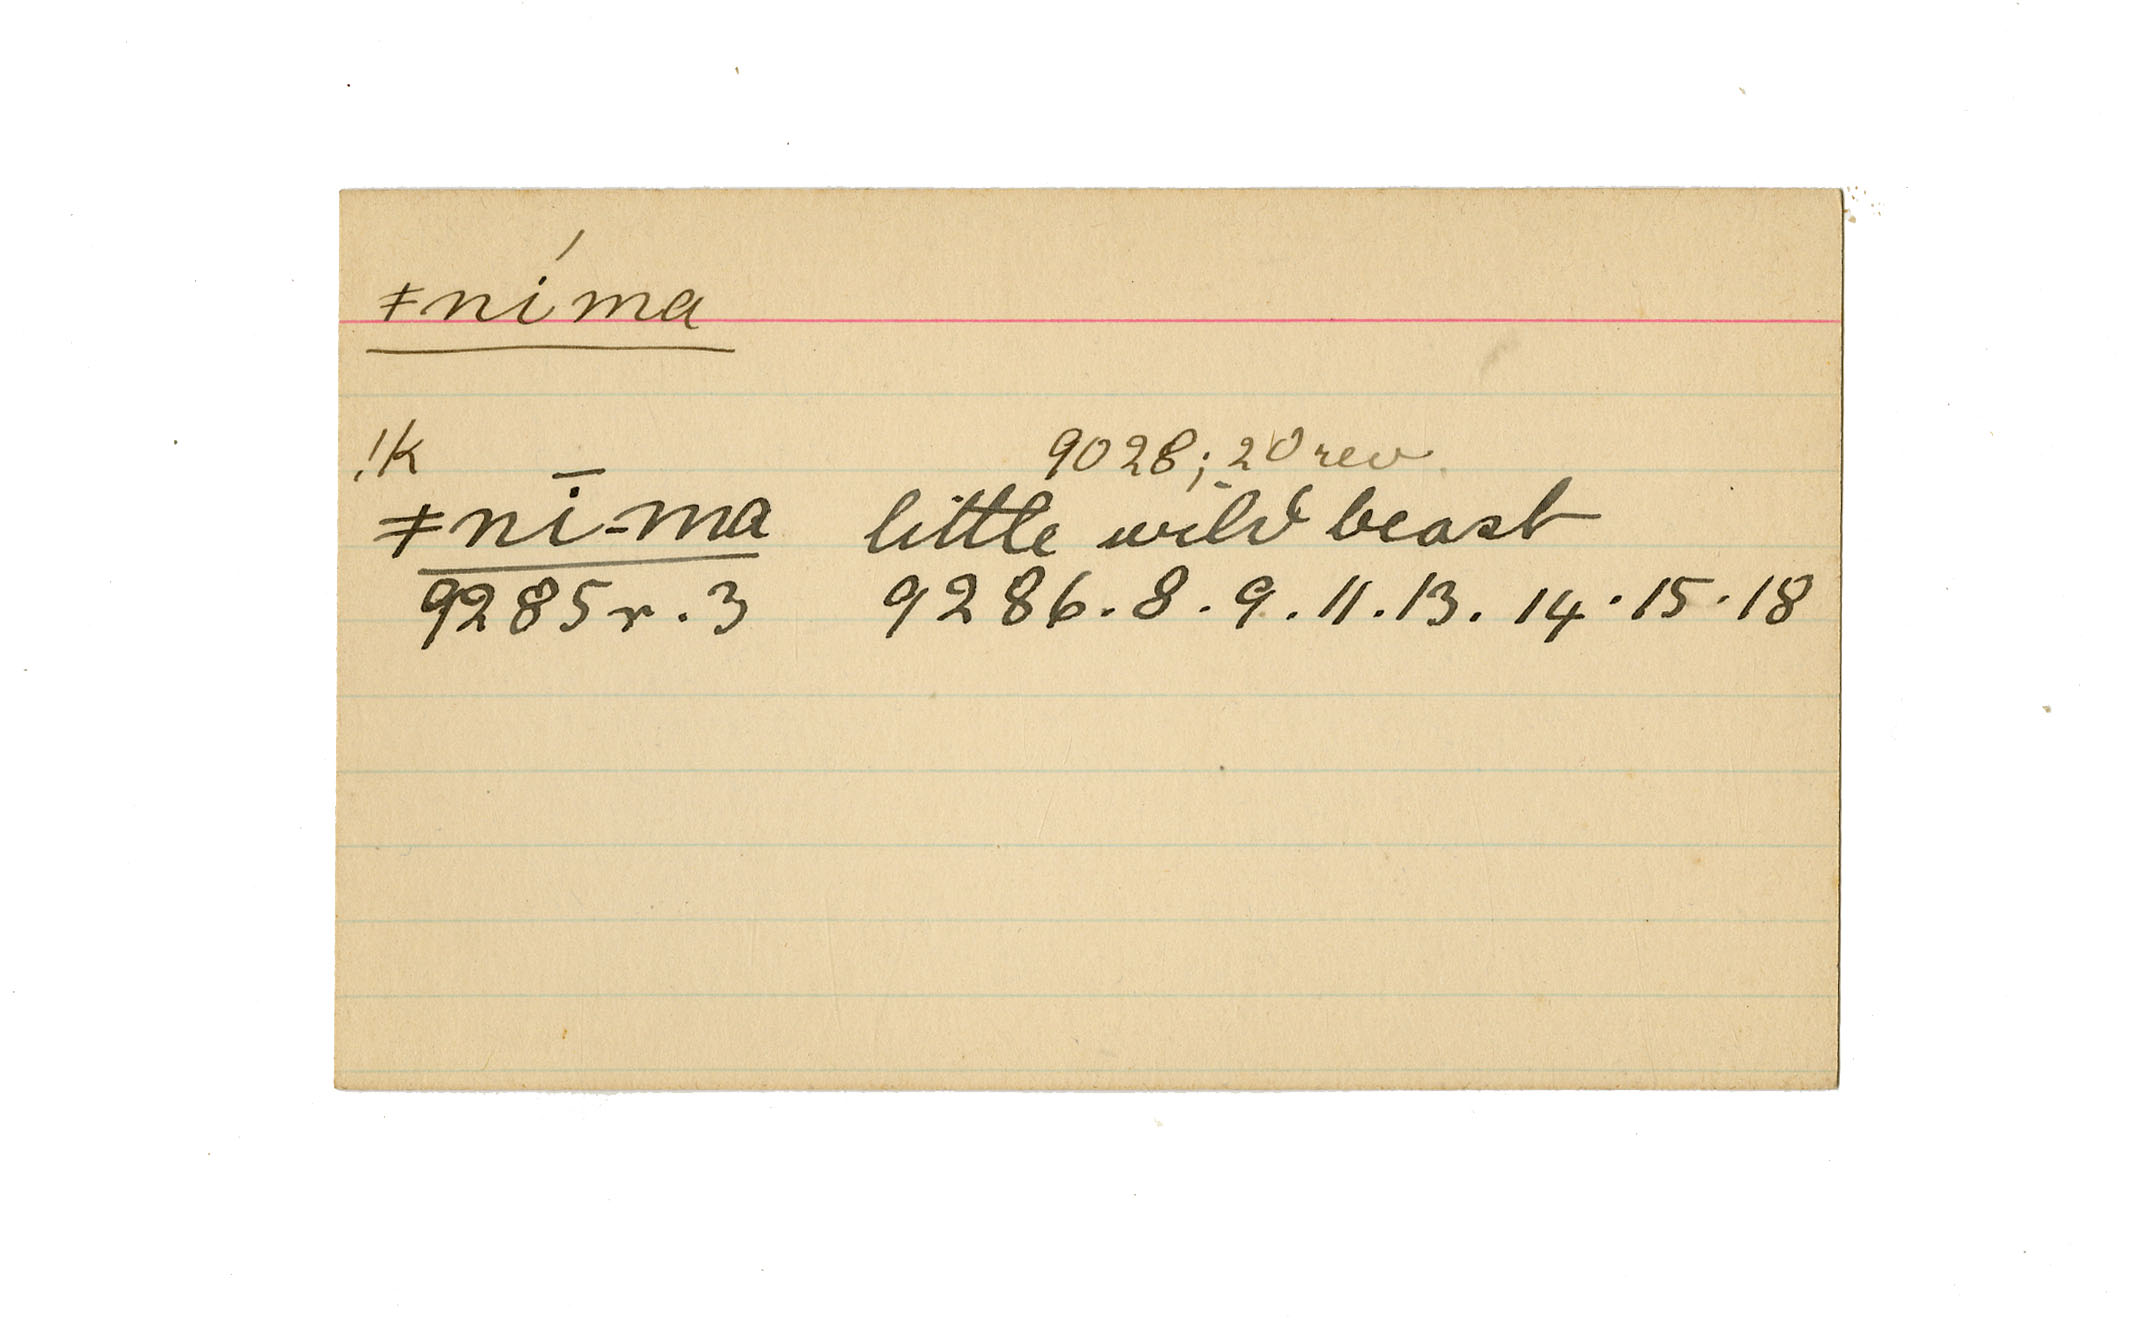 ǂníma
!k
9028; 20 rev.
ǂnī-ma little wild beast
9285r. 3 9286. 8. 9. 11. 13. 14. 15. 18